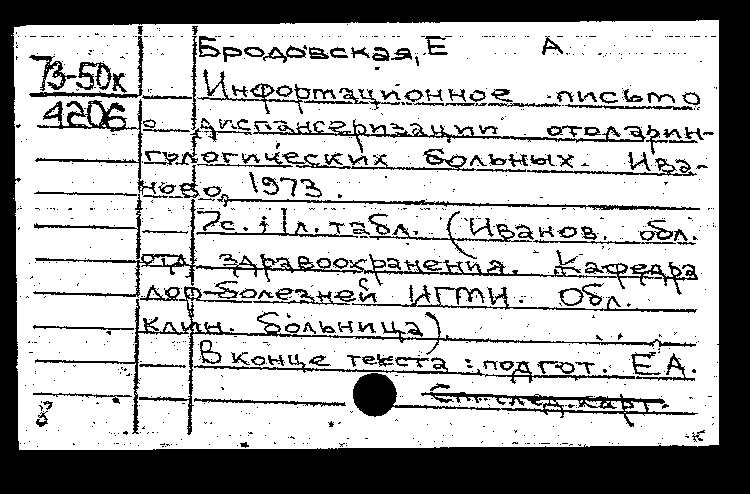 Бродовская, Е А
73-50к
4206
Информационное письмо
о диспансеризации отоларин-
гологических больных. Ива-
ново, 1973.
7с. ; 1л. табл. (Иванов. обл.
отд. здравоохранения. Кафедра
лор-болезней ИГМИ. Обл.
клин. больница)
В конце текста : подгот. Е.А.
См. след. карт.
8